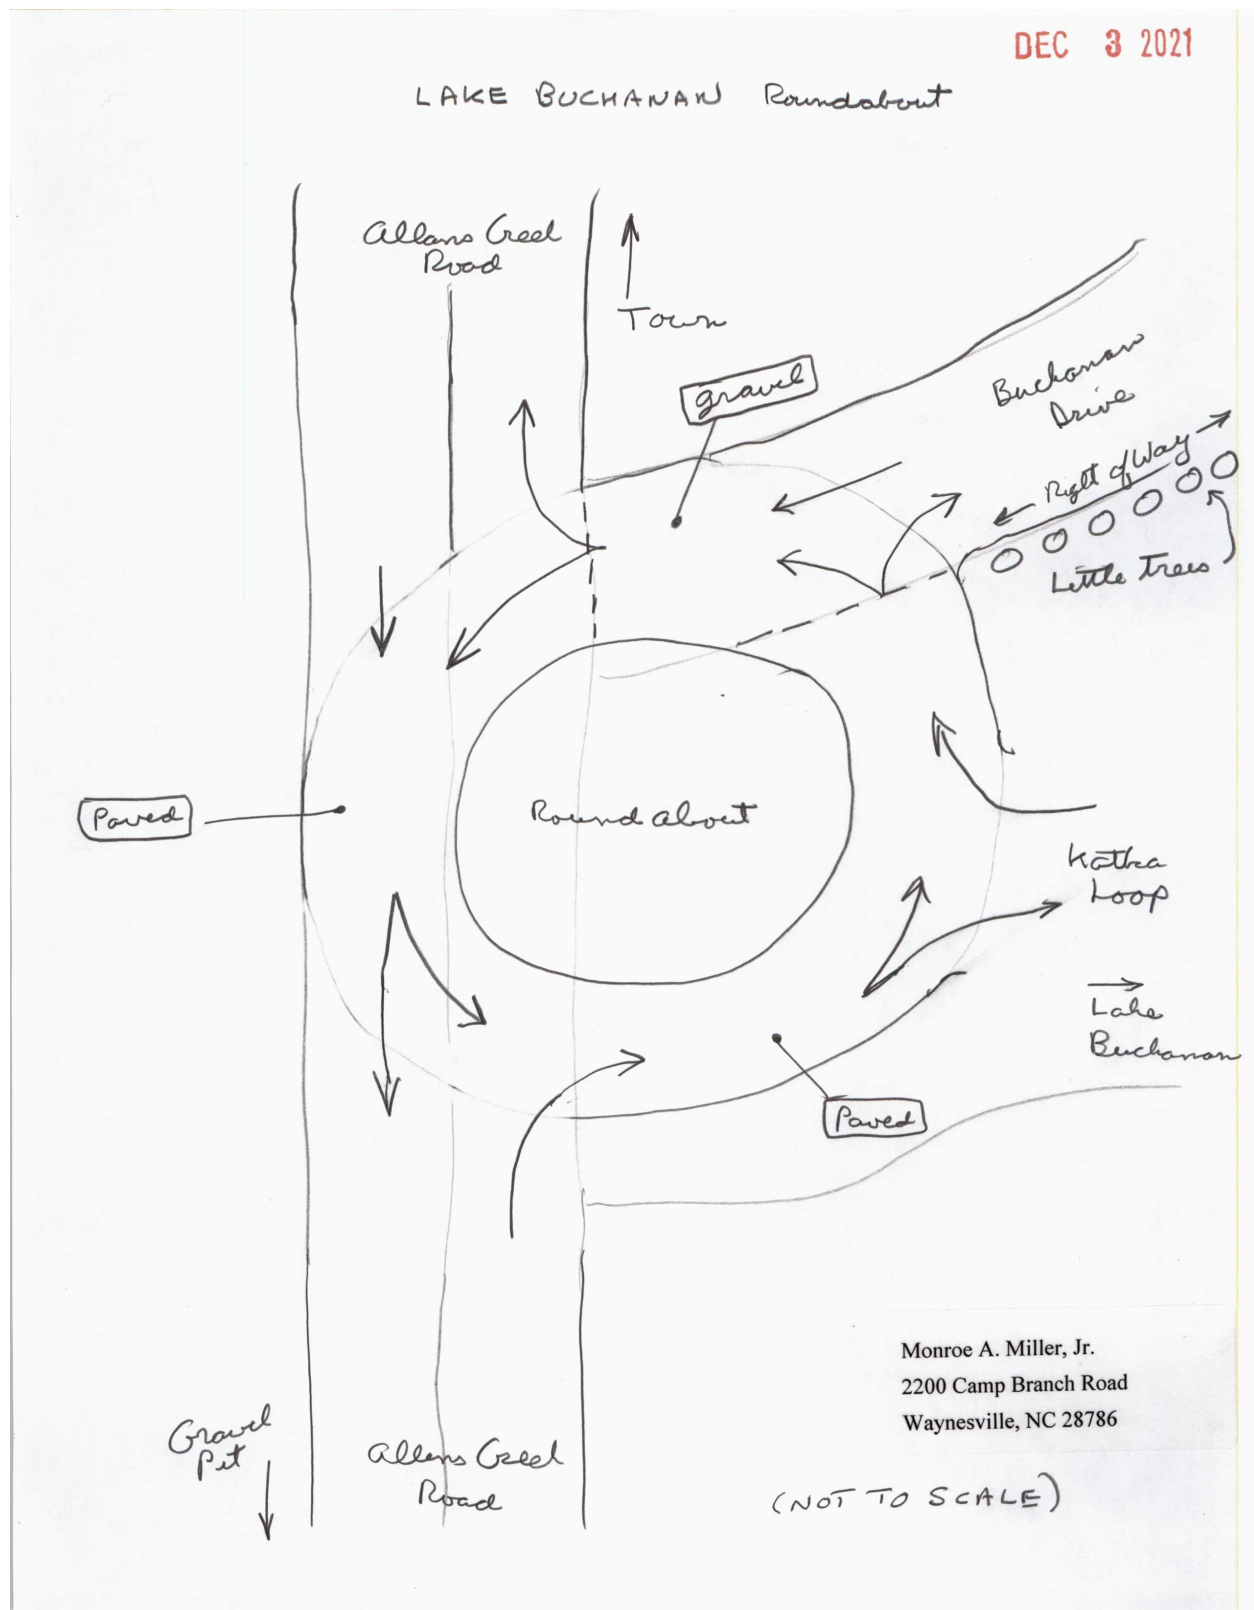 DEC 3 2021
LAKE BUCHANAN Roundabout
Allans Creek
Road
Town
gravel
Buchanan
Drive
Right of Way
Little Trees
Paved
Roundabout
Katka
Loop
Lake
Buchanan
Paved
Monroe A. Miller, Jr.
2200 Camp Branch Road
Waynesville, NC 28786
Gravel
Pit
Allens Creek
Road
(NOT TO SCALE)